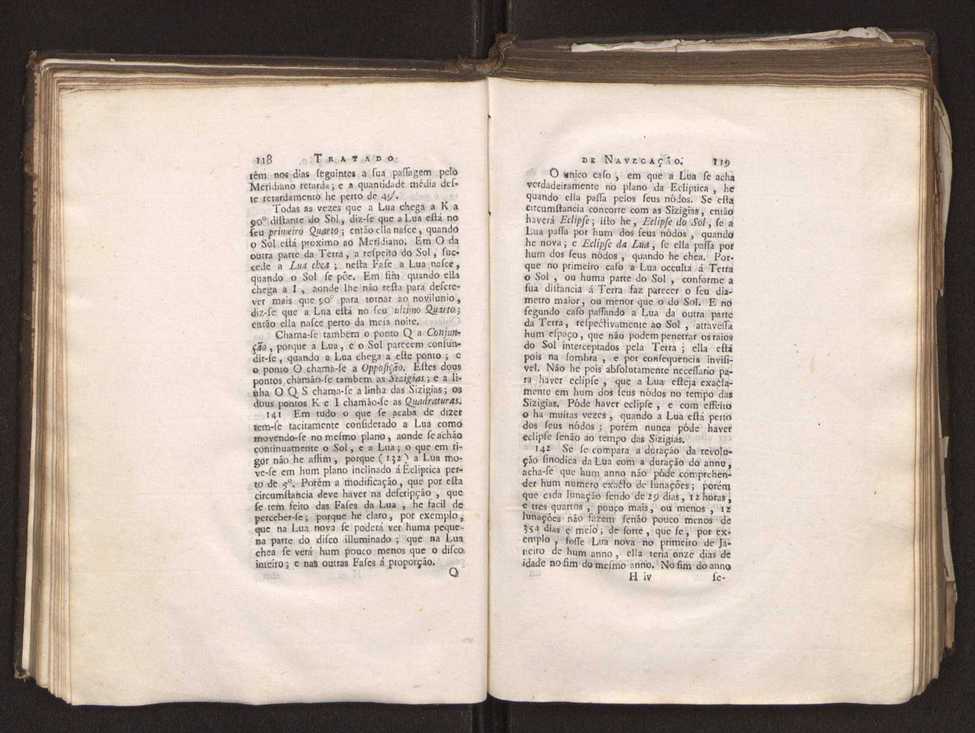 118 TRATADO
têm nos dias seguintes a sua passagem pelo
Meridiano retarda; e a quantidade média des-
te retardamento he perto de 49′.
Todas as vezes que a Lua chega a K a
90° distante do Sol, diz-se que a Lua está no
seu primeiro Quarto; então ella nasce, quando
o Sol está proximo ao Meridiano. Em O da
outra parte da Terra, a respeito do Sol, suc-
cede a Lua chea; nesta Fase a Lua nasce,
quando o Sol se põe. Em fim quando ella
chega a I, aonde lhe não resta para descre-
ver mais que 90° para tornar ao novilunio,
diz-se que a Lua está no seu ultimo Quarto;
então ella nasce perto da meia noite.
Chama-se tambem o ponto Q a Conjun-
ção, porque a Lua, e o Sol parecem confun-
dir-se, quando a Lua chega a este ponto; e
o ponto O chama-se a Opposição. Estes dous
pontos chamão-se tambem as Sizigias; e a li-
nha O Q S chama-se a linha das Sizigias; os
dous pontos K e I chamão-se as Quadraturas.
141 Em tudo o que se acaba de dizer
tem-se tacitamente considerado a Lua como
movendo-se no mesmo plano, aonde se achão
continuamente o Sol, e a Lua; o que em ri-
gor não he assim, porque (132) a Lua mo-
ve-se em hum plano inclinado á Ecliptica per-
to de 5°. Porém a modificação, que por esta
circumstancia deve haver na descripção, que
se tem feito das Fases da Lua, he facil de
perceber-se; porque he claro, por exemplo,
que na Lua nova se poderá ver huma peque-
na parte do disco illuminado; que na Lua
chea se verá hum pouco menos que o disco
inteiro; e nas outras Fases á proporção.
O
DE NAVEGAÇÃO. 119
O unico caso, em que a Lua se acha
verdadeiramente no plano da Ecliptica, he
quando ella passa pelos seus nódos. Se esta
circumstancia concorte com as Sizigias, então
haverá Eclipse; isto he, Eclipse do Sol, se a
Lua passa por hum dos seus nódos, quando
he nova; e Eclipse da Lua, se ella passa por
hum dos seus nódos, quando he chea. Por-
que no primeiro caso a Lua occulta á Terra
o Sol, ou huma parte do Sol, conforme a
sua distancia á Terra faz parecer o seu dia-
metro maior, ou menor que o do Sol. E no
segundo caso passando a Lua da outra parte
da Terra, respectivamente ao Sol, atravessa
hum espaço, que não podem penetrar os raios
do Sol interceptados pela Terra; ella está
pois na sombra, e por consequencia invisi-
vel. Não he pois absolutamente necessario pa-
ra haver eclipse, que a Lua esteja exacta-
mente em hum dos seus nódos no tempo das
Sizigias. Póde haver eclipse, e com effeito
o ha muitas vezes, quando a Lua está perto
dos seus nódos; porém nunca póde haver
eclipse senão ao tempo das Sizigias.
142 Se se compara a duração da revolu-
ção sinodica da Lua com a duração do anno,
acha-se que hum anno não póde comprehen-
der hum numero exacto de lunações; porém
que cada lunação sendo de 29 dias, 12 horas,
e tres quartos, pouco mais, ou menos, 12
lunações não fazem senão pouco menos de
354 dias e meio; de sorte, que se, por ex-
emplo, fosse Lua nova no primeiro de Ja-
neiro de hum anno, ella teria onze dias de
idade no fim do mesmo anno. No fim do anno
H iv se-